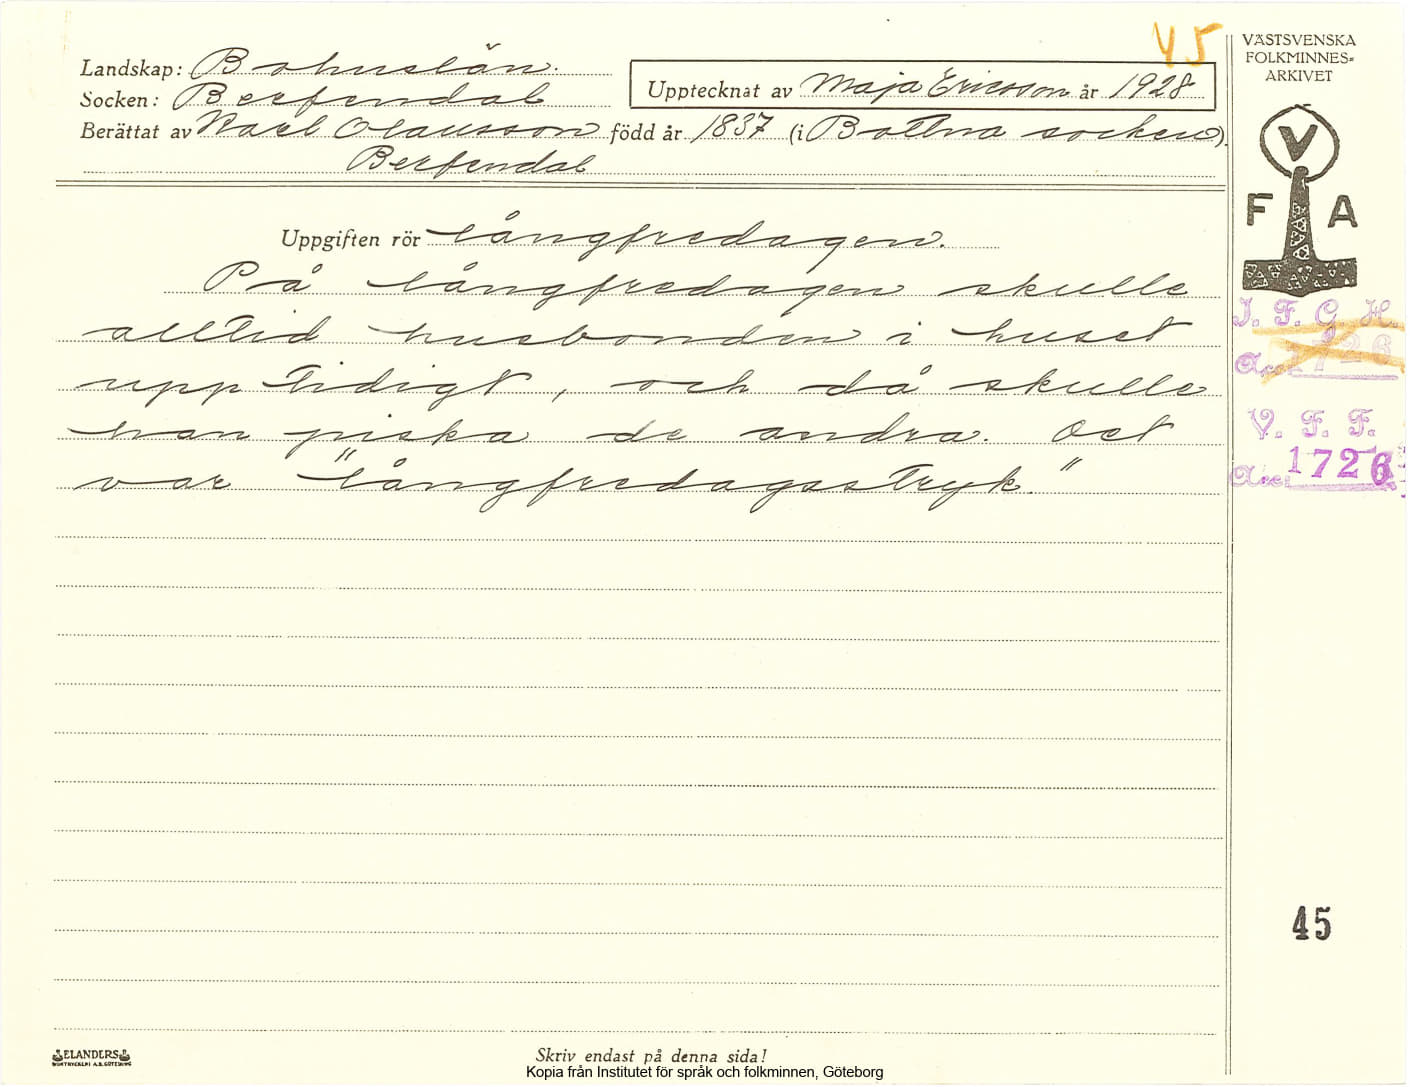 45
VÄSTSVENSKA
FOLKMINNES=
ARKIVET
Landskap: Bohuslän.
Socken: Berfendal
Upptecknat av Maja Ericsson år 1928
Berättat av Karl Olausson född år 1837 (i Bottna socken).
Berfendal
V
F A
Uppgiften rör långfredagen.
På långfredagen skulle
alltid husbonden i huset
upp tidigt, och då skulle
han piska de andra. Det
var "långfredagsstryk."
I. F. G. H.
Acc. 1726
V. F. F.
Acc: 1726
45
ELANDERS
BOKTRYCKERI A.B. GÖTEBORG
Skriv endast på denna sida!
Kopia från Institutet för språk och folkminnen, Göteborg